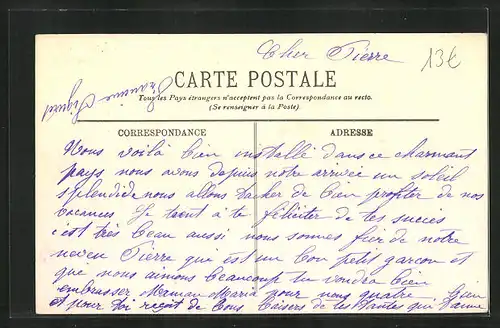 Cher Pierre
13€
Francine
CARTE POSTALE
Tous les Pays étrangers n'acceptent pas la Correspondance au recto.
(Se renseigner à la Poste).
CORRESPONDANCE
ADRESSE
Nous voilà bien installé dans ce charmant
pays nous avons depuis notre arrivée un soleil
splendide nous allons tacher de bien profiter de nos
vacances Je tient à te féliciter de tes succes
c'est très beau aussi nous sommes fier de notre
neveu Pierre qui est un bon petit garcon et
que nous aimons beaucoup tu voudra bien
embrasser Maman Maria pour nous quatre
et pour toi reçoit de bons baisers de tes tantes qui t'aime bien